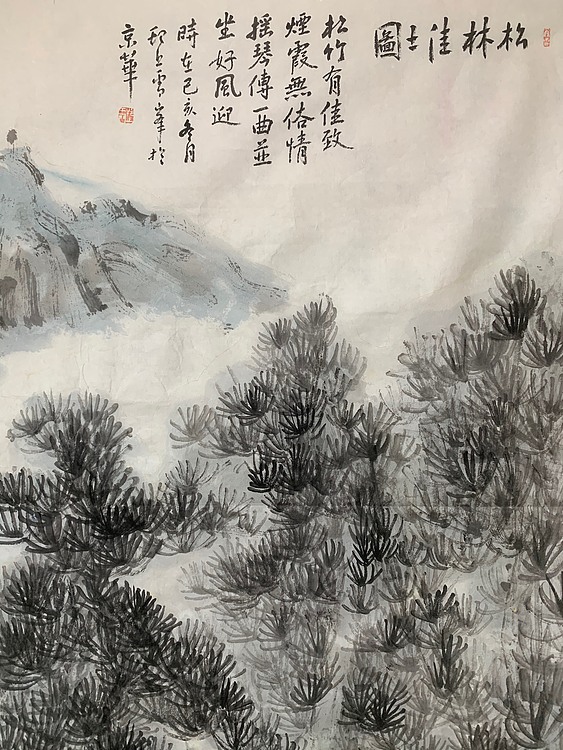 松林佳士圖
松竹有佳致
煙霞無俗情
摇琴傳一曲並
坐好風迎
時在己亥冬月
雲峯於
京華